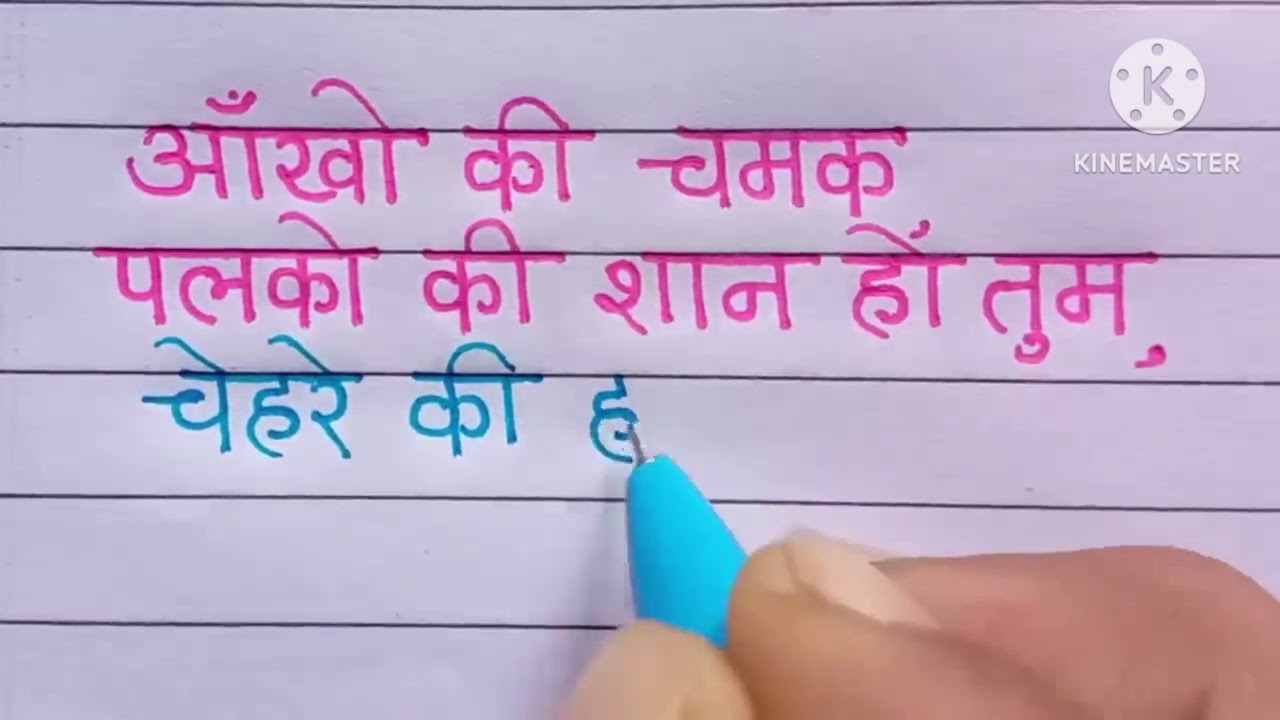 आँखो की चमक
पलको की शान हों तुम,
चेहरे की ह
KINEMASTER